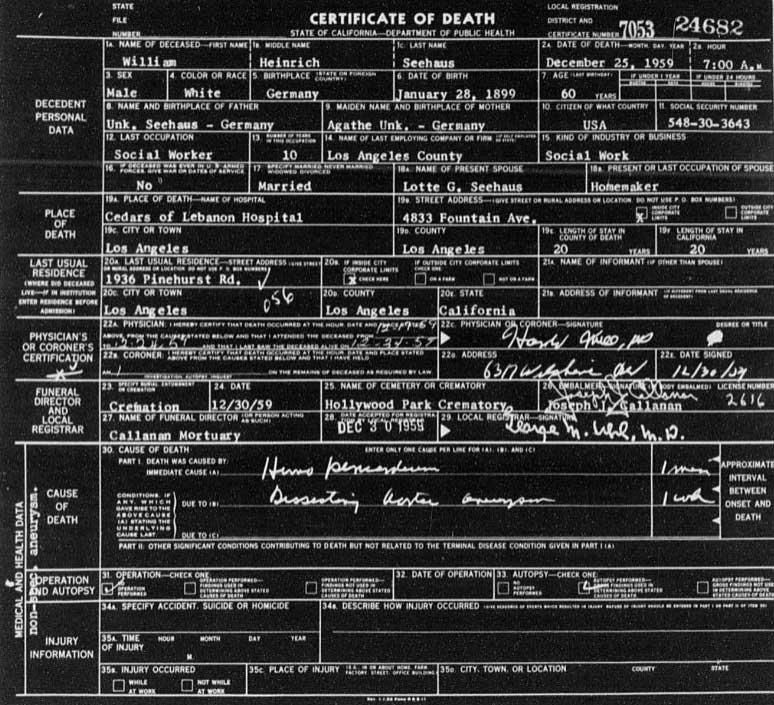 STATE FILE NUMBER
CERTIFICATE OF DEATH
STATE OF CALIFORNIA—DEPARTMENT OF PUBLIC HEALTH
LOCAL REGISTRATION DISTRICT AND CERTIFICATE NUMBER 7053 24682
DECEDENT PERSONAL DATA
1A. NAME OF DECEASED—FIRST NAME 1B. MIDDLE NAME 1C. LAST NAME 2A. DATE OF DEATH—MONTH, DAY, YEAR 2B. HOUR
William Heinrich Seehaus December 25, 1959 7:00 A.M
3. SEX 4. COLOR OR RACE 5. BIRTHPLACE (STATE OR FOREIGN COUNTRY) 6. DATE OF BIRTH 7. AGE (LAST BIRTHDAY) IF UNDER 1 YEAR IF UNDER 24 HOURS
Male White Germany January 28, 1899 60 YEARS
8. NAME AND BIRTHPLACE OF FATHER 9. MAIDEN NAME AND BIRTHPLACE OF MOTHER 10. CITIZEN OF WHAT COUNTRY 11. SOCIAL SECURITY NUMBER
Unk. Seehaus - Germany Agathe Unk. - Germany USA 548-30-3643
12. LAST OCCUPATION 13. NUMBER OF YEARS IN THIS OCCUPATION 14. NAME OF LAST EMPLOYING COMPANY OR FIRM 15. KIND OF INDUSTRY OR BUSINESS
Social Worker 10 Los Angeles County Social Work
16. IF DECEASED WAS EVER IN U. S. ARMED FORCES, GIVE WAR OR DATES OF SERVICE 17. SPECIFY MARRIED, NEVER MARRIED, WIDOWED, DIVORCED 18A. NAME OF PRESENT SPOUSE 18B. PRESENT OR LAST OCCUPATION OF SPOUSE
No Married Lotte G. Seehaus Homemaker
PLACE OF DEATH
19A. PLACE OF DEATH—NAME OF HOSPITAL 19B. STREET ADDRESS—(GIVE STREET OR RURAL ADDRESS OR LOCATION. DO NOT USE P. O. BOX NUMBERS)
Cedars of Lebanon Hospital 4833 Fountain Ave. X INSIDE CITY CORPORATE LIMITS OUTSIDE CITY CORPORATE LIMITS
19C. CITY OR TOWN 19D. COUNTY 19E. LENGTH OF STAY IN COUNTY OF DEATH 19F. LENGTH OF STAY IN CALIFORNIA
Los Angeles Los Angeles 20 YEARS 20 YEARS
LAST USUAL RESIDENCE (WHERE DID DECEASED LIVE—IF IN INSTITUTION ENTER RESIDENCE BEFORE ADMISSION)
20A. LAST USUAL RESIDENCE—STREET ADDRESS 20B. IF INSIDE CITY CORPORATE LIMITS IF OUTSIDE CITY CORPORATE LIMITS CHECK ONE 21A. NAME OF INFORMANT (IF OTHER THAN SPOUSE)
1936 Pinehurst Rd. X CHECK HERE ON A FARM NOT ON A FARM
20C. CITY OR TOWN 20D. COUNTY 20E. STATE 21B. ADDRESS OF INFORMANT
Los Angeles 056 Los Angeles California
PHYSICIAN'S OR CORONER'S CERTIFICATION
22A. PHYSICIAN: I HEREBY CERTIFY THAT DEATH OCCURRED AT THE HOUR, DATE AND PLACE STATED ABOVE FROM THE CAUSES STATED BELOW AND THAT I ATTENDED THE DECEASED FROM AND THAT I LAST SAW THE DECEASED ALIVE ON
22C. PHYSICIAN OR CORONER—SIGNATURE DEGREE OR TITLE
22B. CORONER: I HEREBY CERTIFY THAT DEATH OCCURRED AT THE HOUR, DATE AND PLACE STATED ABOVE FROM THE CAUSES STATED BELOW AND THAT I HAVE HELD AN ON THE REMAINS OF DECEASED AS REQUIRED BY LAW.
INVESTIGATION, AUTOPSY, INQUEST
22D. ADDRESS 22E. DATE SIGNED
12/30/59
FUNERAL DIRECTOR AND LOCAL REGISTRAR
23. SPECIFY BURIAL, ENTOMBMENT OR CREMATION 24. DATE 25. NAME OF CEMETERY OR CREMATORY 26. EMBALMER—SIGNATURE (IF BODY EMBALMED) LICENSE NUMBER
Cremation 12/30/59 Hollywood Park Crematory Joseph J. Callanan 2616
27. NAME OF FUNERAL DIRECTOR (OR PERSON ACTING AS SUCH) 28. DATE ACCEPTED FOR REGISTRATION 29. LOCAL REGISTRAR—SIGNATURE
Callanan Mortuary DEC 30 1959 George M. Uhl, M.D.
MEDICAL AND HEALTH DATA
aneurysm.
CAUSE OF DEATH
30. CAUSE OF DEATH ENTER ONLY ONE CAUSE PER LINE FOR (A), (B), AND (C)
PART I. DEATH WAS CAUSED BY: IMMEDIATE CAUSE (A) Hemopericardium
CONDITIONS, IF ANY, WHICH GAVE RISE TO THE ABOVE CAUSE (A) STATING THE UNDERLYING CAUSE LAST. DUE TO (B) Dissecting aortic aneurysm
DUE TO (C)
APPROXIMATE INTERVAL BETWEEN ONSET AND DEATH
PART II: OTHER SIGNIFICANT CONDITIONS CONTRIBUTING TO DEATH BUT NOT RELATED TO THE TERMINAL DISEASE CONDITION GIVEN IN PART I (A)
OPERATION AND AUTOPSY
31. OPERATION—CHECK ONE: 32. DATE OF OPERATION 33. AUTOPSY—CHECK ONE:
OPERATION PERFORMED OPERATION PERFORMED—FINDINGS USED IN DETERMINING ABOVE STATED CAUSES OF DEATH OPERATION PERFORMED—FINDINGS NOT USED IN DETERMINING ABOVE STATED CAUSES OF DEATH
NO AUTOPSY PERFORMED AUTOPSY PERFORMED—GROSS FINDINGS USED IN DETERMINING ABOVE STATED CAUSES OF DEATH AUTOPSY PERFORMED—GROSS FINDINGS NOT USED IN DETERMINING ABOVE STATED CAUSES OF DEATH
INJURY INFORMATION
34A. SPECIFY ACCIDENT, SUICIDE OR HOMICIDE 34B. DESCRIBE HOW INJURY OCCURRED
35A. TIME OF INJURY HOUR MONTH DAY YEAR
M.
35B. INJURY OCCURRED 35C. PLACE OF INJURY 35D. CITY, TOWN, OR LOCATION COUNTY STATE
WHILE AT WORK NOT WHILE AT WORK